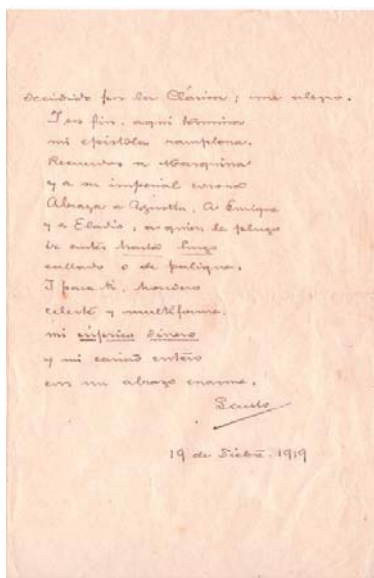 decidido por los Clásicos; me alegro.
I en fin, aquí termina
mi epístola ramplona.
Recuerdos a Marquina
y a su imperial corona
Abraza a Agustín, a Enrique
y a Eladio, a quien le plugo
ir antes hasta Lugo
callado o de palique.
I para ti,
celeste y multiforme,
mi
y mi cariño entero
con un abrazo enorme.
19 de Dicbre. 1919